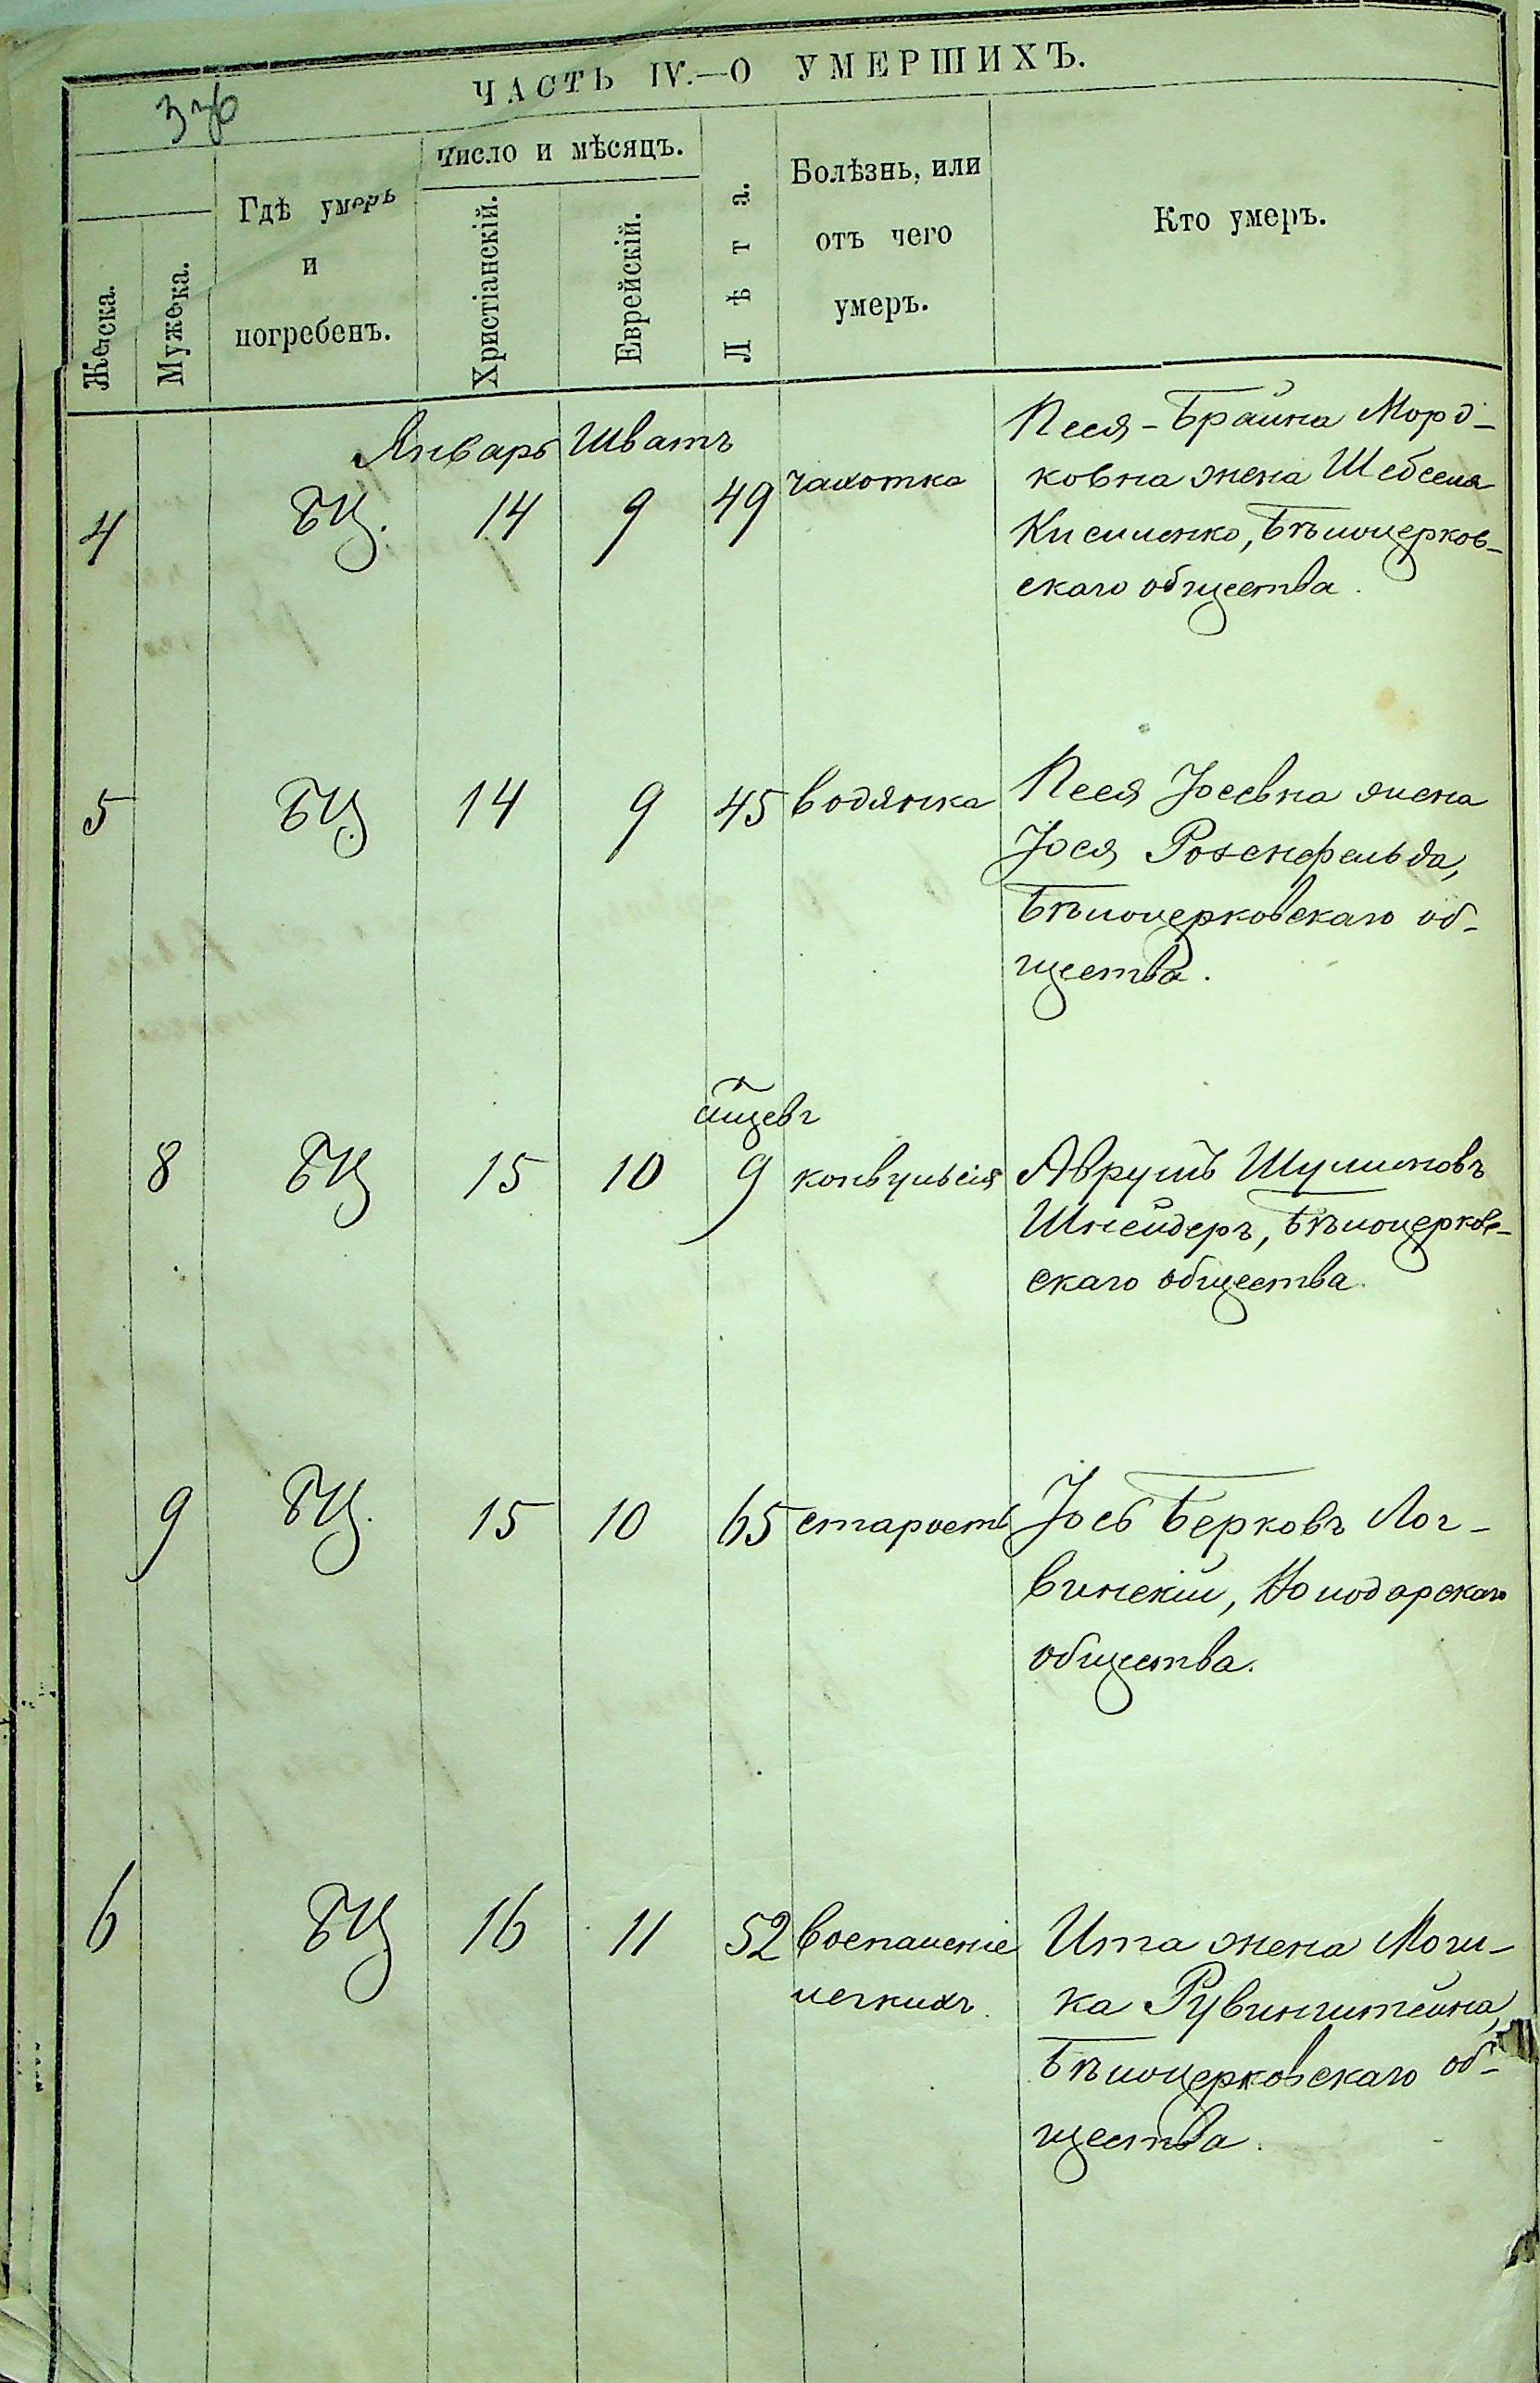 ЧАСТЬ IV.—О УМЕРШИХЪ.
336
Женска.
Мужеска.
Гдѣ умеръ
и
погребенъ.
Число и мѣсяцъ.
Христіанскій.
Еврейскій.
Лѣта.
Болѣзнь, или
отъ чего
умеръ.
Кто умеръ.
Январь Шватъ
4 БЦ. 14 9 49 чахотка
Песя-Брайна Морд-
ковна жена Шебселя
Кисиленко, Бѣлоцерков-
скаго общества.
5 БЦ 14 9 45 водянка
Песя Іосевна жена
Іося Розенфельда,
Бѣлоцерковскаго об-
щества.
8 БЦ 15 10 9 конвульсія
Аврумъ Шулимовъ
Шнейдеръ, Бѣлоцерков-
скаго общества.
9 БЦ. 15 10 65 старость
Іось Берковъ Лог-
винскій,
общества.
6 БЦ 16 11 52 воспаленіе
легкихъ.
Ита жена
ка Рувинштейна,
Бѣлоцерковскаго об-
щества.